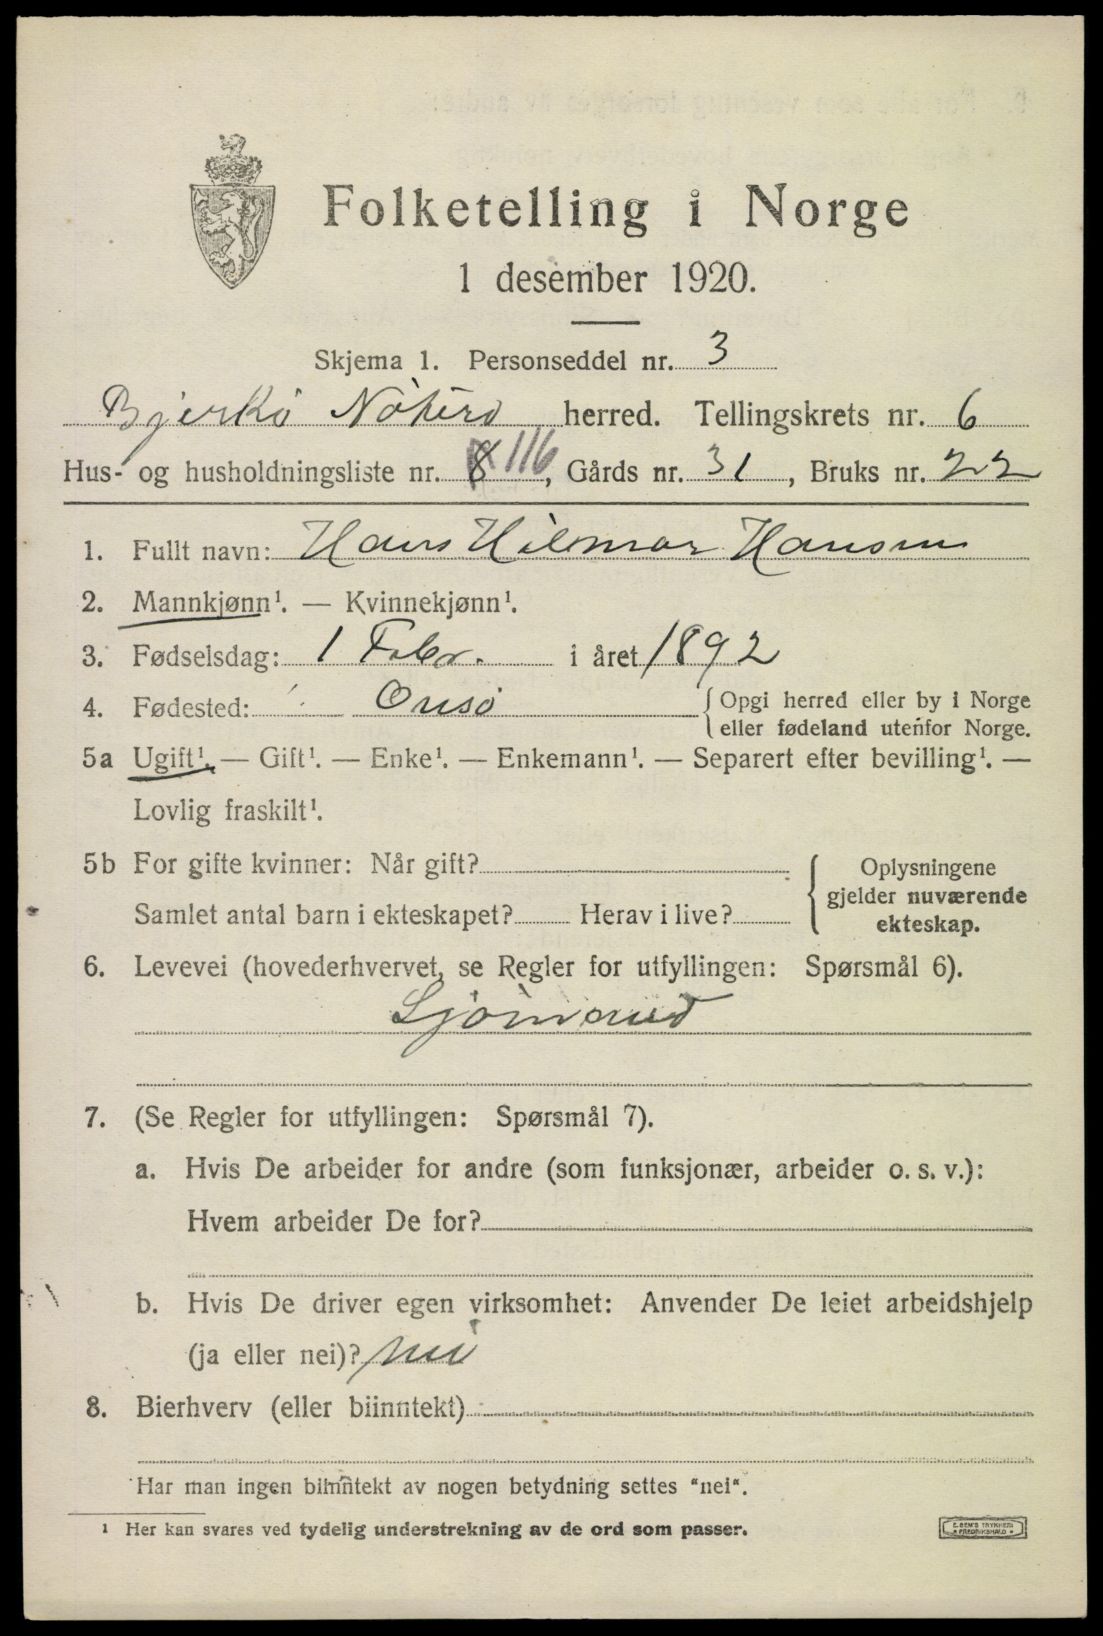 Folketelling i Norge
1 desember 1920.
Skjema 1. Personseddel nr. 3
Bjerkö Nöterö herred. Tellingskrets nr. 6
Hus- og husholdningsliste nr. 8 116, Gårds nr. 31, Bruks nr. 22
1. Fullt navn: Hans Hilmar Hansen
2. Mannkjønn¹. — Kvinnekjønn¹.
3. Fødselsdag: 1 Febr. i året 1892
4. Fødested: Onsö {Opgi herred eller by i Norge
eller fødeland utenfor Norge.
5a Ugift¹. — Gift¹. — Enke¹. — Enkemann¹. — Separert efter bevilling¹. —
Lovlig fraskilt¹.
5b For gifte kvinner: Når gift? Oplysningene
gjelder nuværende
Samlet antal barn i ekteskapet? Herav i live? ekteskap.
6. Levevei (hovederhvervet, se Regler for utfyllingen: Spørsmål 6).
Sjömand
7. (Se Regler for utfyllingen: Spørsmål 7).
a. Hvis De arbeider for andre (som funksjonær, arbeider o. s. v.):
Hvem arbeider De for?
b. Hvis De driver egen virksomhet: Anvender De leiet arbeidshjelp
(ja eller nei)? nei
8. Bierhverv (eller biinntekt)
Har man ingen biinntekt av nogen betydning settes "nei".
¹ Her kan svares ved tydelig understrekning av de ord som passer.
E. SEM'S TRYKKERI
FREDRIKSHALD